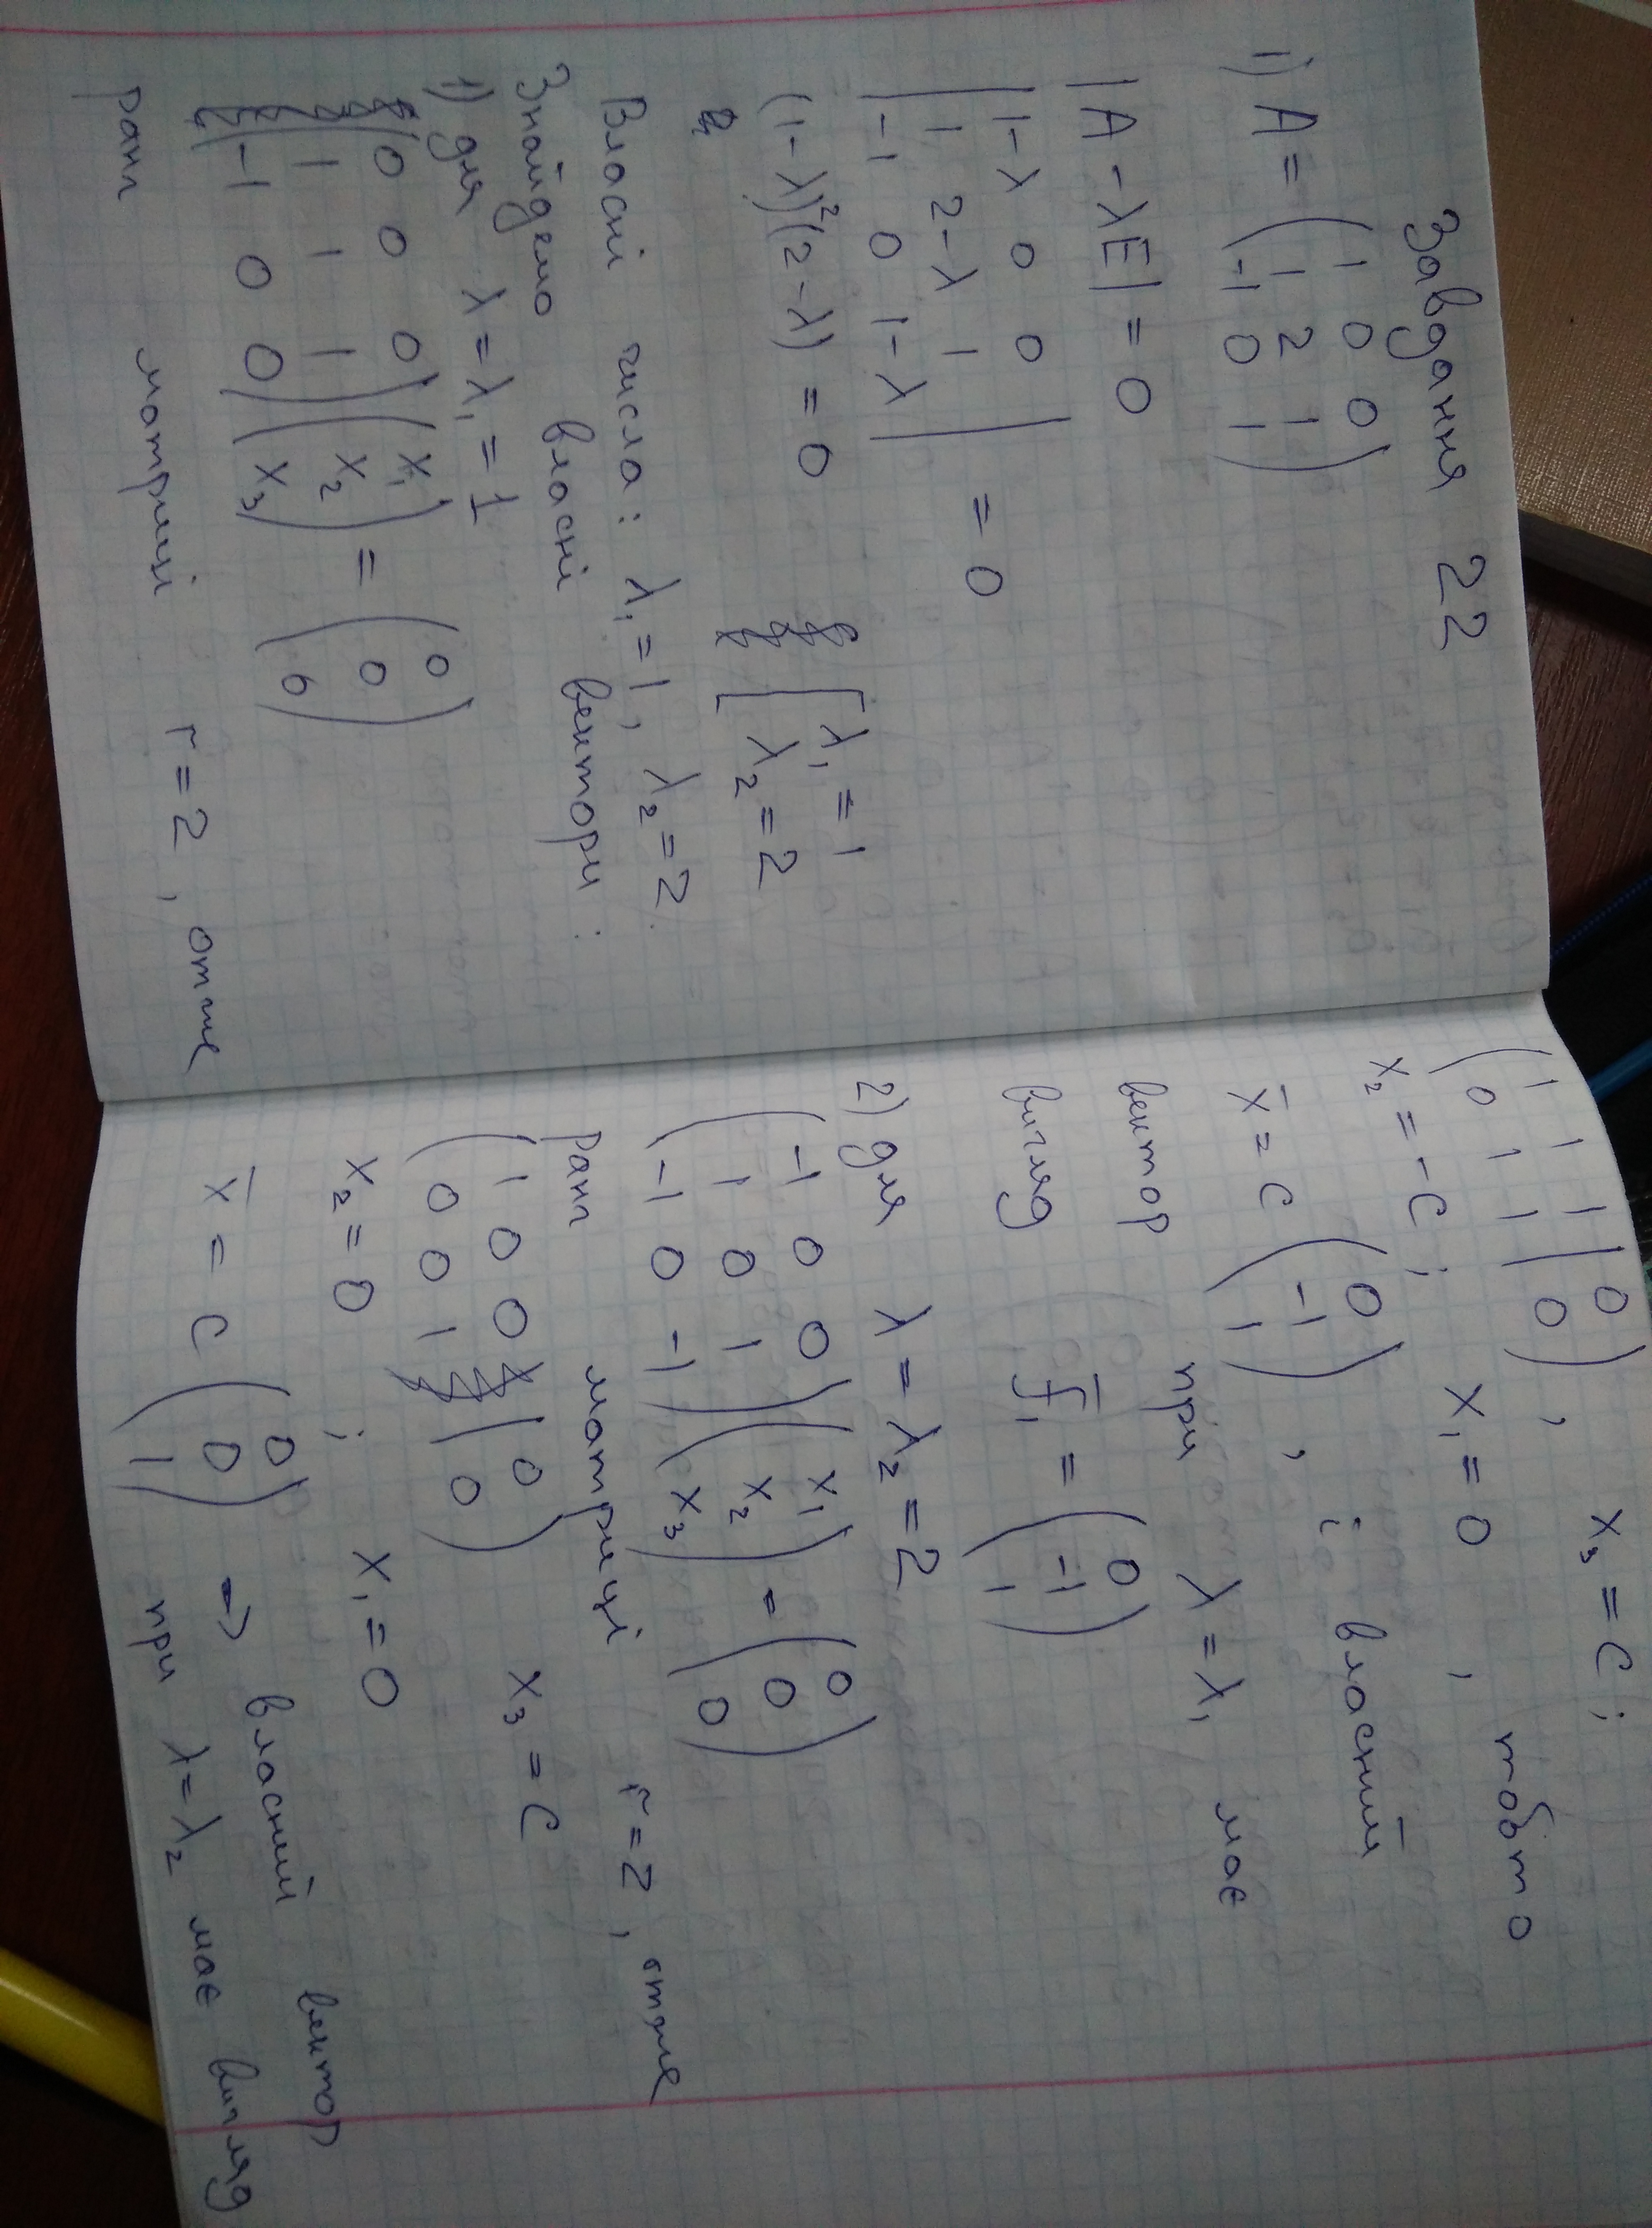 Завдання 22
1) A = ( 1 0 0
1 2 1
-1 0 1 )
|A - λE| = 0
| 1-λ 0 0
1 2-λ 1
-1 0 1-λ | = 0
(1-λ)²(2-λ) = 0 [ λ₁ = 1
λ₂ = 2
Власні числа: λ₁ = 1, λ₂ = 2
Знайдемо власні вектори:
1) для λ = λ₁ = 1
( 0 0 0
1 1 1
-1 0 0 ) ( x₁
x₂
x₃ ) = ( 0
0
0 )
ранг матриці r = 2, отже
( 1 1 1 | 0
0 1 1 | 0 ), x₃ = C;
x₂ = -C; x₁ = 0, тобто
x̄ = C ( 0
-1
1 ), і власний
вектор при λ = λ₁ має
вигляд f̄₁ = ( 0
-1
1 )
2) для λ = λ₂ = 2
( -1 0 0
1 0 1
-1 0 -1 ) ( x₁
x₂
x₃ ) = ( 0
0
0 )
Ранг матриці r = 2, отже
( 1 0 0 | 0
0 0 1 | 0 ) x₃ = C
x₂ = 0; x₁ = 0
x̄ = C ( 0
0
1 ) => власний вектор
при λ = λ₂ має вигляд